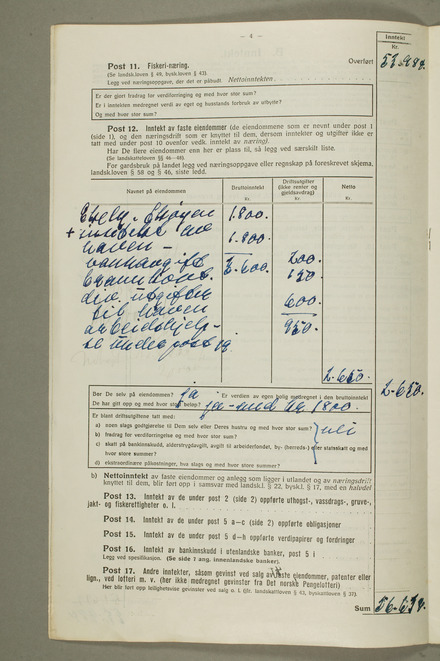 — 4 —
Inntekt
Kr.
Post 11. Fiskeri-næring. Overført
(Se landsk.loven § 49, bysk.loven § 43).
Legg ved næringsoppgave, der det er påbudt. Nettoinntekten.
Er der gjort fradrag for verdiforringing og med hvor stor sum?
Er i inntekten medregnet verdi av eget og husstands forbruk av utbytte?
Og med hvor stor sum?
Post 12. Inntekt av faste eiendommer (de eiendommene som er nevnt under post 1
(side 1), og den næringsdrift som er knyttet til dem, dersom inntekter og utgifter ikke er
tatt med under post 10 ovenfor vedk. inntekt av næring).
Har De flere eiendommer enn her er plass til, så legg ved særskilt liste.
(Se landskatteloven §§ 46—48).
For gardsbruk på landet legg ved næringsoppgave eller regnskap på foreskrevet skjema,
landsk.loven § 58 og § 46, siste ledd.
Navnet på eiendommen
Bruttoinntekt
Kr.
Driftsutgifter
(ikke renter og
gjeldsavdrag)
Kr.
Netto
Kr.
1.800.
+ inntekt av
haven — 1.800.
3.600. 200.
150
div. utgifter
til haven 600.
arbeidshjelp- 950.
se under post 19.
2.650.
2.650.
Bor De selv på eiendommen? ja Er verdien av egen bolig medregnet i den bruttoinntekt
De har gitt opp og med hvor stort beløp? ja - med kr 1800.
Er blant driftsutgiftene tatt med:
a) noen slags godtgjørelse til Dem selv eller Deres hustru og med hvor stor sum?
b) fradrag for verdiforringelse og med hvor stor sum?
c) skatt på bankinnskudd, alderstrygdavgift, avgift til arbeiderfondet, by- (herreds-) eller statsskatt og med
hvor store summer?
d) ekstraordinære påkostninger, hva slags og med hvor store summer?
b) Nettoinntekt av faste eiendommer og anlegg som ligger i utlandet og av næringsdrift
knyttet til dem, blir ført opp i samsvar med landsk.l. § 22, bysk.l. § 17, med en halvdel
Post 13. Inntekt av de under post 2 (side 2) oppførte uthogst-, vassdrags-, gruve-,
jakt- og fiskerettigheter o. l.
Post 14. Inntekt av de under post 5 a—c (side 2) oppførte obligasjoner
Post 15. Inntekt av de under post 5 d—h oppførte verdipapirer og fordringer
Post 16. Inntekt av bankinnskudd i utenlandske banker, post 5 i
Legg ved spesifikasjon. (Se side 7 ang. innenlandske banker).
Post 17. Andre inntekter, såsom gevinst ved salg av faste eiendommer, patenter eller
lign., ved lotteri m. v. (her ikke medregnet gevinster fra Det norske Pengelotteri)
Her blir ført opp leilighetsvise gevinster ved salg o. l. (jfr. landskattloven § 43, byskattloven § 37).
Sum